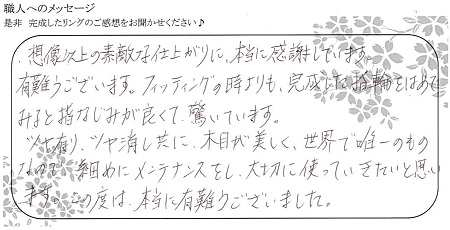 職人へのメッセージ
是非 完成したリングのご感想をお聞かせください♪
・想像以上の素敵な仕上がりに、本当に感謝しています。
有難うございます。フィッティングの時よりも、完成した指輪をはめて
みると指なじみが良くて、驚いています。
ツヤ有り、ツヤ消し共に、木目が美しく、世界で唯一のもの
なので、細めにメンテナンスをし、大切に使っていきたいと思い
ます。この度は、本当に有難うございました。